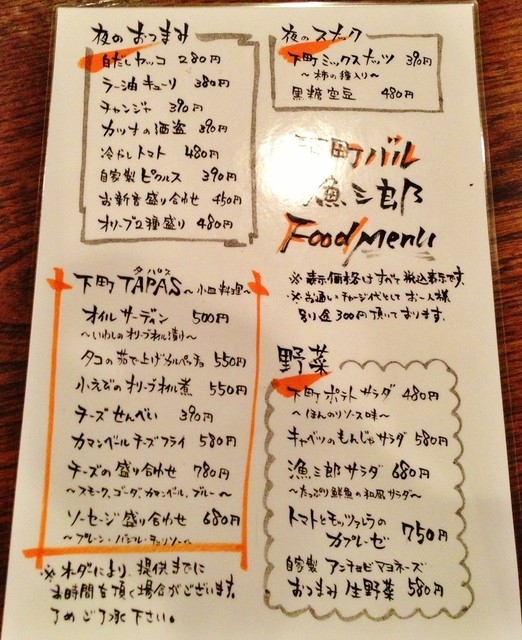 夜のおつまみ
白だしヤッコ 280円
ラー油キューリ 380円
チャンジャ 390円
カツオの酒盗 390円
冷やしトマト 480円
自家製ピクルス 390円
お新香盛り合わせ 450円
オリーブ2種盛り 480円
夜のスナック
下町ミックスナッツ 390円
〜柿の種入り〜
黒糖空豆 480円
下町バル
漁三郎
Food Menu
※表示価格はすべて税込表示です。
※お通し・チャージ代としてお一人様
別途300円頂いております。
下町TAPAS〜小皿料理〜
タパス
オイルサーディン 500円
〜いわしのオリーブオイル漬け〜
タコの茹で上げカルパッチョ 550円
小えびのオリーブオイル煮 550円
チーズせんべい 390円
カマンベールチーズフライ 580円
チーズの盛り合わせ 780円
〜スモーク、ゴーダ、カマンベール、ブルー〜
ソーセージ盛り合わせ 680円
〜プレーン・バジル・チョリソー〜
※オーダーにより、提供までに
お時間を頂く場合がございます。
了めご了承下さい。
野菜
下町ポテトサラダ 480円
〜ほんのりソース味〜
キャベツのもんじゃサラダ 580円
漁三郎サラダ 680円
〜たっぷり鮮魚の和風サラダ〜
トマトとモッツァレラの
カプレーゼ 750円
自家製 アンチョビマヨネーズ
おつまみ生野菜 580円